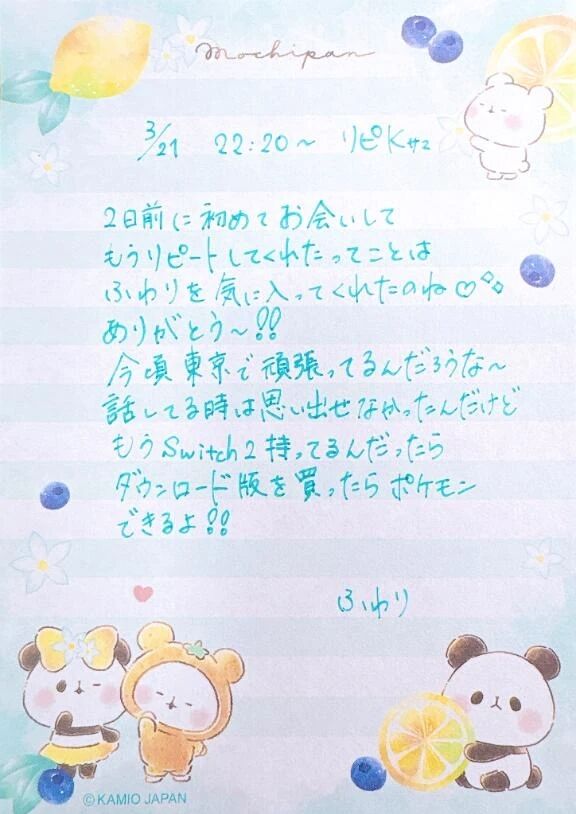 mochipan
3/21 22:20〜 リピKサマ
2日前に初めてお会いして
もうリピートしてくれたってことは
ふわりを気に入ってくれたのね♡
ありがとう〜!!
今頃東京で頑張ってるんだろうな〜
話してる時は思い出せなかったんだけど
もうSwitch2持ってるんだったら
ダウンロード版を買ったらポケモン
できるよ!!
ふわり
©KAMIO JAPAN